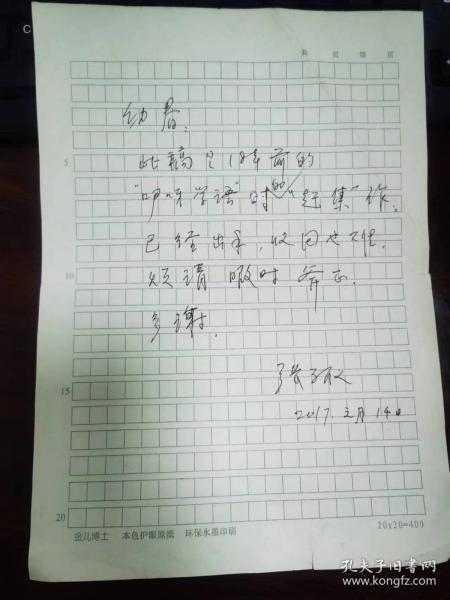 共 页 第 页
幼春:
此稿是18年前的
"咿呀学语"时的"赶集"作.
已经出手,收回也不能.
烦请暇时斧正.
多谢.
2017.3月14日
5
10
15
20
金儿博士 本色护眼原纸 环保水墨印刷
20x20=400
孔夫子旧书网
www.kongfz.com